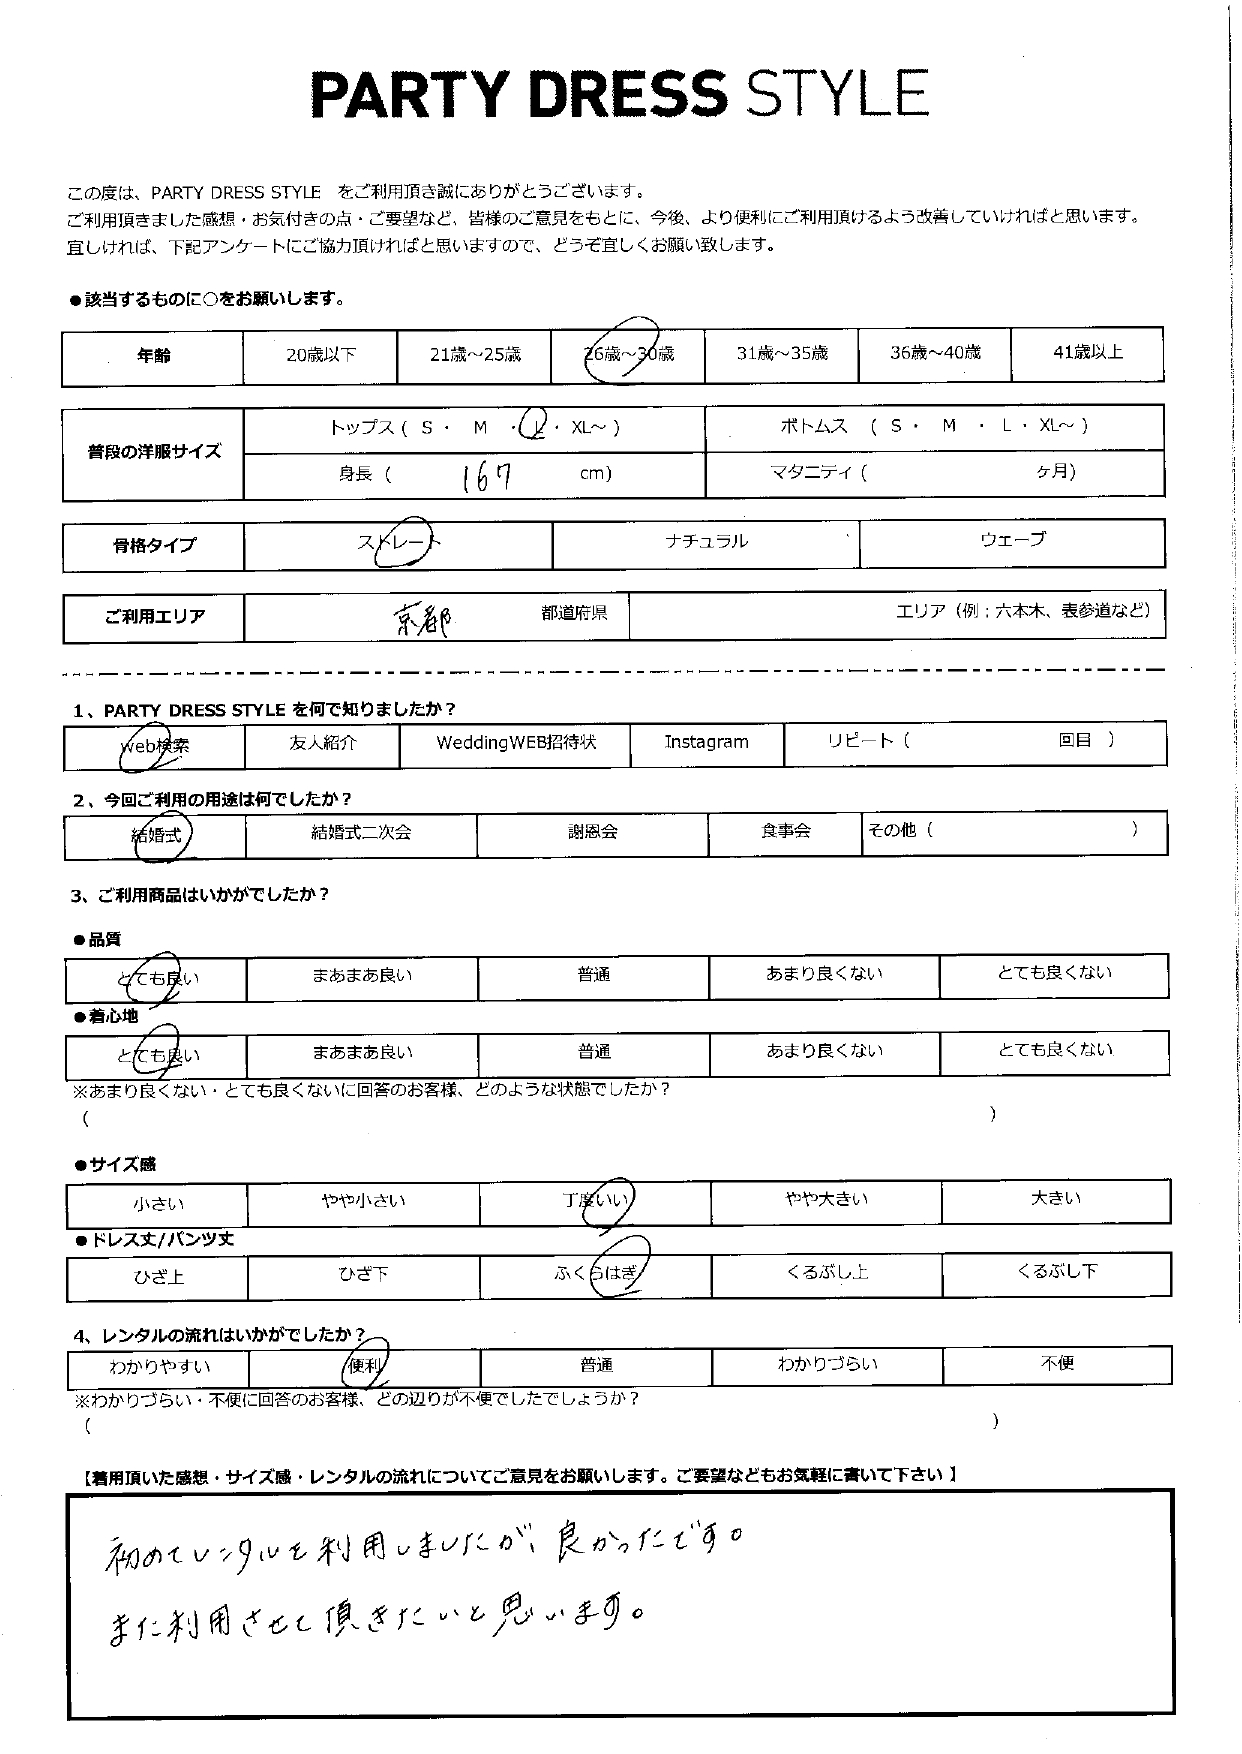 PARTY DRESS STYLE
この度は、PARTY DRESS STYLE　をご利用頂き誠にありがとうございます。
ご利用頂きました感想・お気付きの点・ご要望など、皆様のご意見をもとに、今後、より便利にご利用頂けるよう改善していければと思います。
宜しければ、下記アンケートにご協力頂ければと思いますので、どうぞ宜しくお願い致します。
●該当するものに○をお願いします。
年齢 20歳以下 21歳～25歳 26歳～30歳 31歳～35歳 36歳～40歳 41歳以上
普段の洋服サイズ トップス ( S ・ M ・ L ・ XL～ ) ボトムス ( S ・ M ・ L ・ XL～ )
身長 ( 167 cm) マタニティ ( ヶ月)
骨格タイプ ストレート ナチュラル ウェーブ
ご利用エリア 京都 都道府県 エリア (例 ; 六本木、表参道など)
1、PARTY DRESS STYLE を何で知りましたか？
web検索 友人紹介 WeddingWEB招待状 Instagram リピート ( 回目 )
2、今回ご利用の用途は何でしたか？
結婚式 結婚式二次会 謝恩会 食事会 その他 ( )
3、ご利用商品はいかがでしたか？
●品質
とても良い まあまあ良い 普通 あまり良くない とても良くない
●着心地
とても良い まあまあ良い 普通 あまり良くない とても良くない
※あまり良くない・とても良くないに回答のお客様、どのような状態でしたか？
( )
●サイズ感
小さい やや小さい 丁度いい やや大きい 大きい
●ドレス丈/パンツ丈
ひざ上 ひざ下 ふくらはぎ くるぶし上 くるぶし下
4、レンタルの流れはいかがでしたか？
わかりやすい 便利 普通 わかりづらい 不便
※わかりづらい・不便に回答のお客様、どの辺りが不便でしたでしょうか？
( )
【着用頂いた感想・サイズ感・レンタルの流れについてご意見をお願いします。ご要望などもお気軽に書いて下さい 】
初めてレンタルを利用しましたが、良かったです。
また利用させて頂きたいと思います。